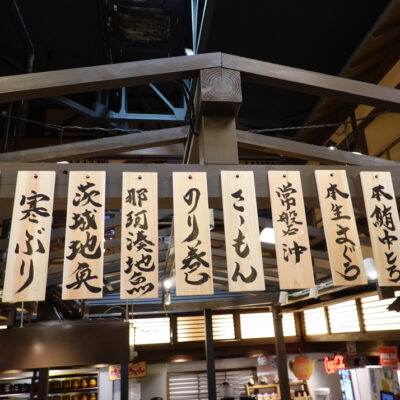 寒ぶり
茨城地魚
那珂湊地魚
のり巻
さゝもん
常磐沖
本生まぐろ
本鮪中とろ